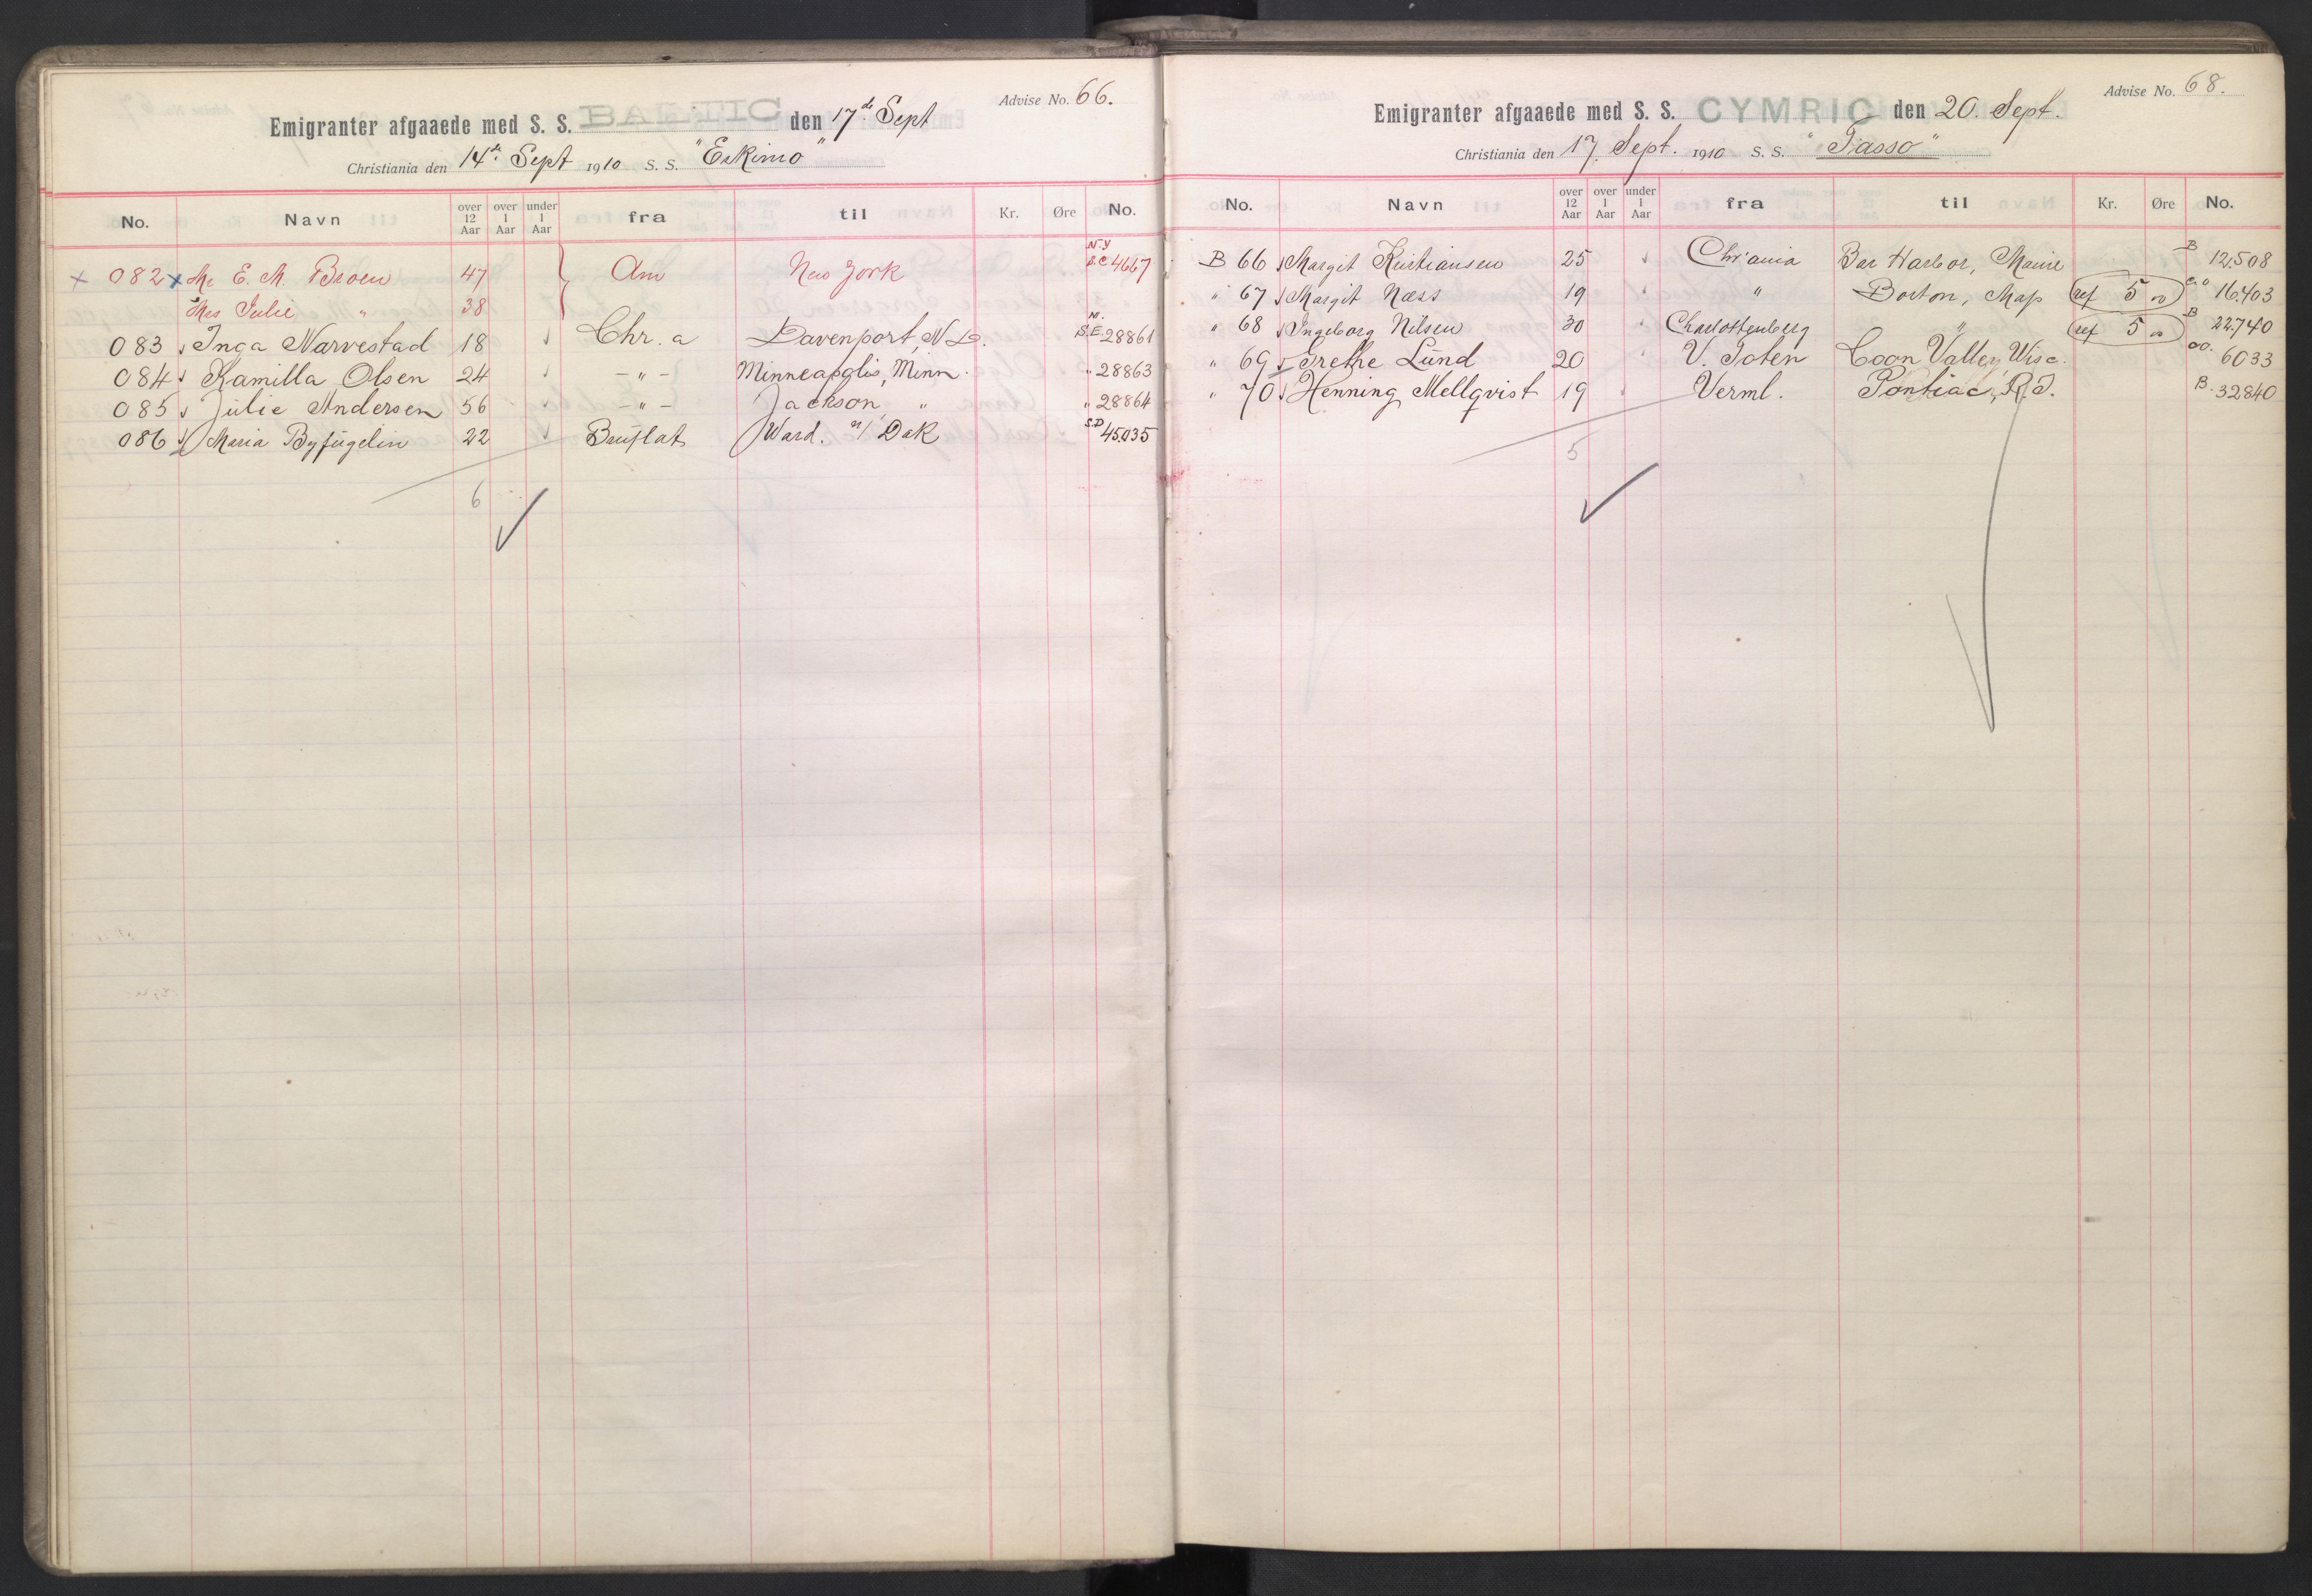 Advise No. 66.
Emigranter afgaaede med S. S. BALTIC den 17de Sept
Christiania den 14de Sept 1910 S. S. "Eskimo"
No. Navn over 12 Aar over 1 Aar under 1 Aar fra til Kr. Øre No.
082 Mr E. M. Broen 47 Am New York N.Y 4667
Mrs Julie " 38
083 Inga Narvestad 18 Chr.a Davenport, N D. S.E 28861
084 Kamilla Olsen 24 -"- Minneapolis, Minn. " 28863
085 Julie Andersen 56 -"- Jackson, " " 28864
086 Maria Byfuglin 22 Bruflat Ward. n/ Dak S.D 45035
6
Advise No. 68.
Emigranter afgaaede med S. S. CYMRIC den 20. Sept.
Christiania den 17. Sept. 1910 S. S. "Tasso"
No. Navn over 12 Aar over 1 Aar under 1 Aar fra til Kr. Øre No.
B 66 Margit Kristiansen 25 Chr'ania Bar Harbor, Maine B 12508
" 67 Margit Næss 19 " Boston, Mass ref 5 00 16403
" 68 Ingeborg Nilsen 30 Charlottenberg " ref 5 00 B 22740
" 69 Grethe Lund 20 V. Toten Coon Valley, Wisc. 6033
" 70 Henning Mellqvist 19 Verml. Pontiac, R.I. B. 32840
5